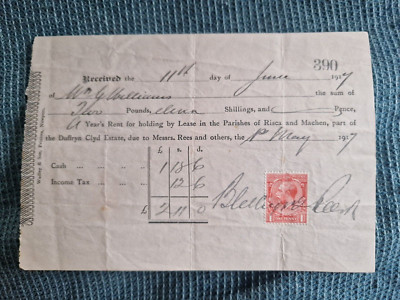 390
Received the 11th day of June 1917
of Wm G Williams the sum of
Two Pounds, eleven Shillings, and Pence,
A Year's Rent for holding by Lease in the Parishes of Risca and Machen, part of
the Duffryn Clyd Estate, due to Messrs. Rees and others, the 1st May 1917
£ s. d.
Cash - - - 1 18 6
Income Tax - - - 12 6
£ 2 11 0